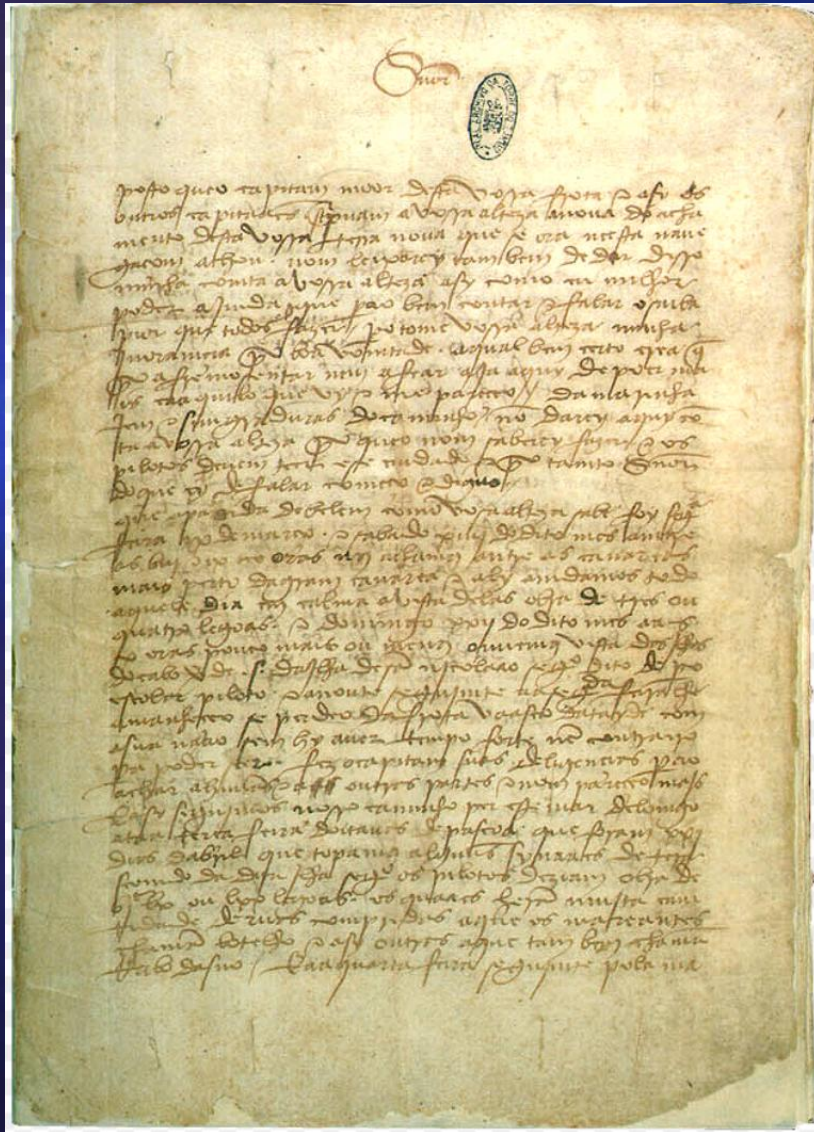 Snõr
posto queo capitam moor desta vossa frota e asy os
outros capitaães screpuam a vossa alteza anoua do acha
mento desta vossa terra noua que se ora neesta naue
gaçom achou. nom leixarey tam bem de dar disso
minha comta a vossa alteza asy como eu milhor
poder ajmda que pera o bem contar e falar o saiba
pior que todos fazer. pero tome vossa alteza minha
jnoramçia por boa vomtade. aqual bem çerto crea que
por afremosentar nem afear aja aquy de poer ma
is caaquilo que vy e me pareçeo. da marinha
jem e simgraduras do caminho nõ darey aquy cõ
ta a vossa alteza por queo nom saberey fazer e os
pilotos deuem teer ese cuidado e por tanto Snõr
do que ey de falar começo e diguo
que apartida de belem como vosa alteza sabe foy segª
feira ix de março. e sabado xiiij do dito mes amtre
as biij e ix oras nos achamos antre as canareas
mais perto da gram canarea e aly amdamos todo
aquele dia em calma avista delas obra de tres ou
quatro legoas. e domingo xxij do dito mes aas
x oras pouco mais ou menos ouuemos vista das jlhas
do cabo verde .s. da jlha de sã njcolaao segº dito de pº
escolar piloto. e anoute segujmte aa segª feira lhe
amanheçeo se perdeo da frota vaasco datayde com
asua naao sem hy auer tempo forte nẽ contrairo
pera poder seer. fez ocapitam suas deligençias pera o
achar ahũuas e a outras partes e nom pareçeo majs
E asy segujmos nosso caminho per este mar delomgo
ataa terça feira doitauas de pascoa que foram xxj
dias dabril que topamos alguũs synaaes de terra
seemdo da dita jlha segº os pilotos deziam obra de
bjc lx ou lxx legoas. os quaaes herã mujta cam
tidade deruas compridas aque os mareantes
chamã botelho e asy outras aque tam bem chamã
Rabo dasno. E aa quarta feira segujmte pola ma